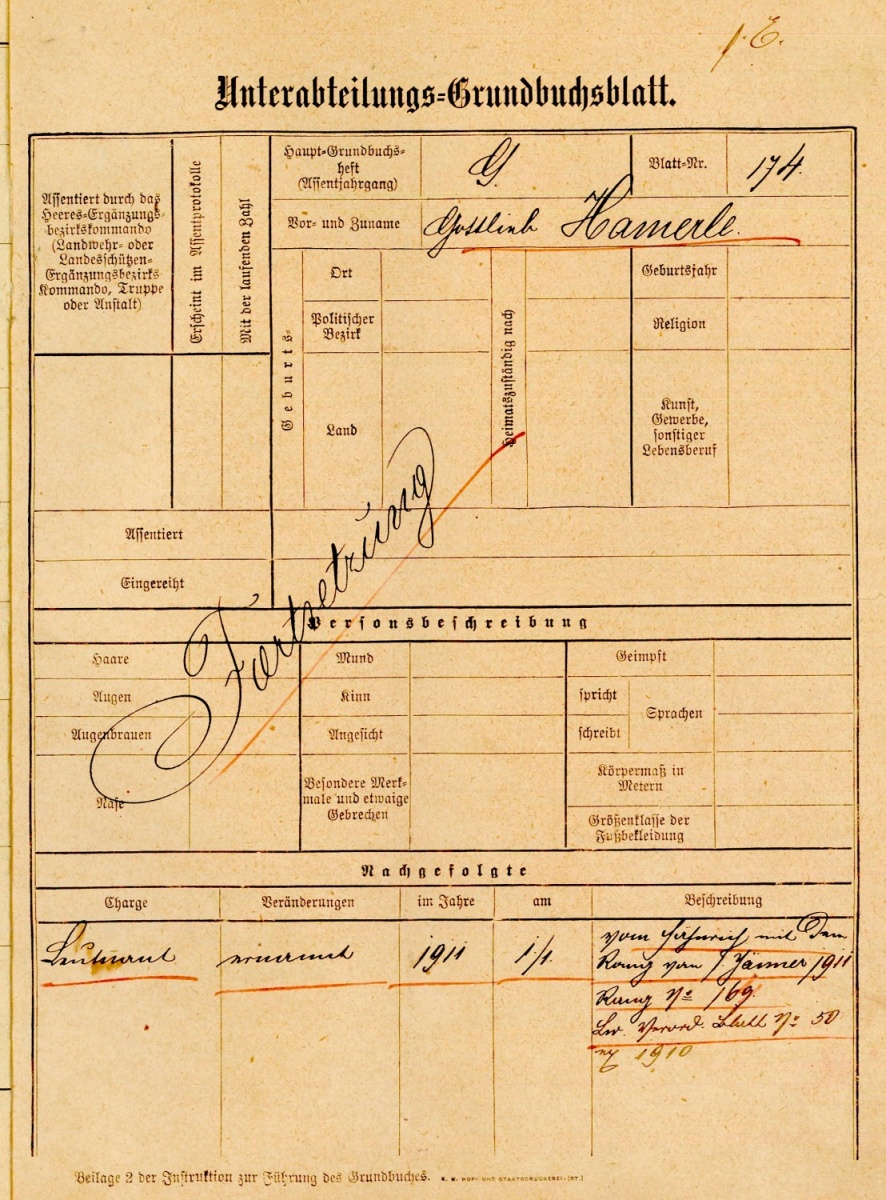 1. E.
Unterabteilungs-Grundbuchsblatt.
Assentiert durch das
Heeres-Ergänzungs-
bezirkskommando
(Landwehr- oder
Landesschützen-
Ergänzungsbezirks
Kommando, Truppe
oder Anstalt)
Erscheint im Assentprotokolle
Mit der laufenden Zahl
Haupt-Grundbuchs-
heft
(Assentjahrgang)
G.
Blatt-Nr.
174.
Vor- und Zuname
Gottlieb Hamerle.
Geburts-
Ort
Politischer
Bezirk
Land
Heimatszuständig nach
Geburtsjahr
Religion
Kunst,
Gewerbe,
sonstiger
Lebensberuf
Assentiert
Eingereiht
Fortsetzung
Personsbeschreibung
Haare
Mund
Geimpft
Augen
Kinn
spricht
Sprachen
Augenbrauen
Angesicht
schreibt
Nase
Besondere Merk-
male und etwaige
Gebrechen
Körpermaß in
Metern
Größenklasse der
Fußbekleidung
Nachgefolgte
Charge
Veränderungen
im Jahre
am
Beschreibung
Leutnant
ernannt
1911
1./1.
vom Fähnrich mit dem
Rang vom 1. Jänner 1911
Rang No 169.
Lw. Verord. Blatt No 50
ex 1910
Beilage 2 der Instruktion zur Führung des Grundbuches.
K. K. HOF- UND STAATSDRUCKEREI. (ST.)